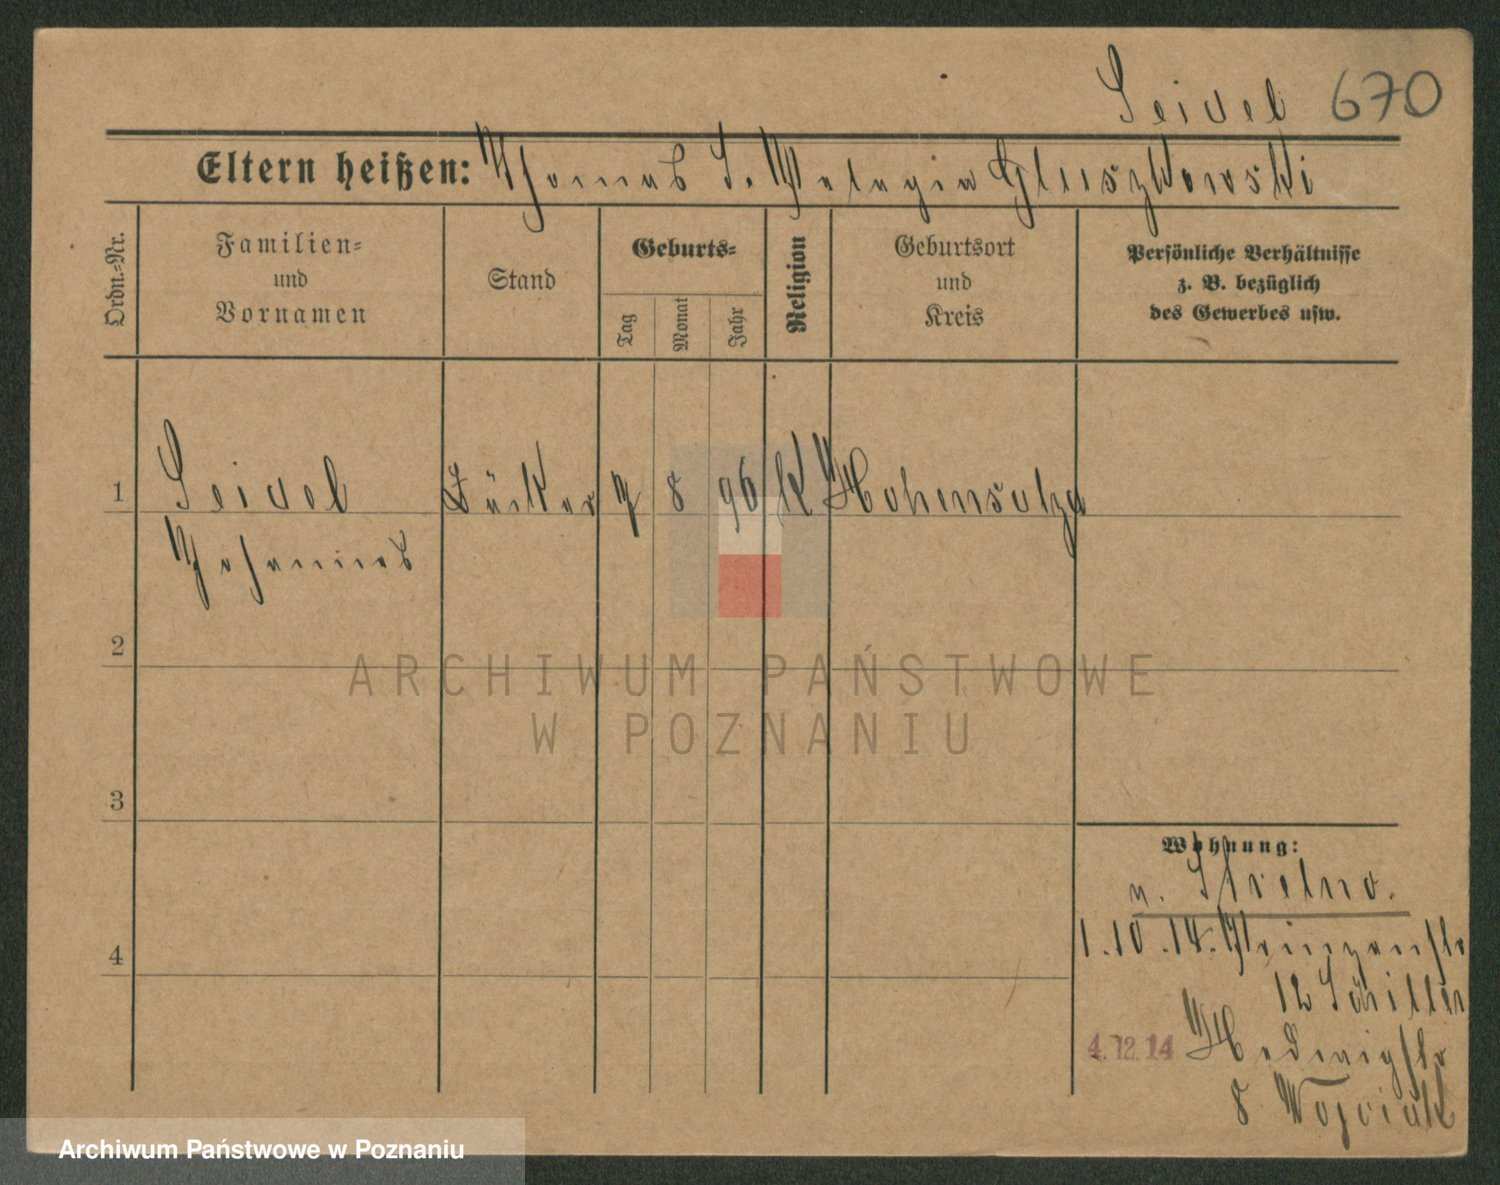 Seidel 670
Eltern heißen: Thomas S. Pelagia Gluszkowski
Ordn.-Nr.
Familien-
und
Vornamen
Stand
Geburts-
Tag
Monat
Jahr
Religion
Geburtsort
und
Kreis
Persönliche Verhältnisse
z. B. bezüglich
des Gewerbes usw.
1 Seidel Bäcker 7 8 96 K Hohensalza
Johannes
2
3
4
Wohnung:
n. Strelno.
1.10.14. Prinzenstr
12 Schiller
4.12.14 Hedwigstr
8 Wojciak
ARCHIWUM PAŃSTWOWE
W POZNANIU
Archiwum Państwowe w Poznaniu